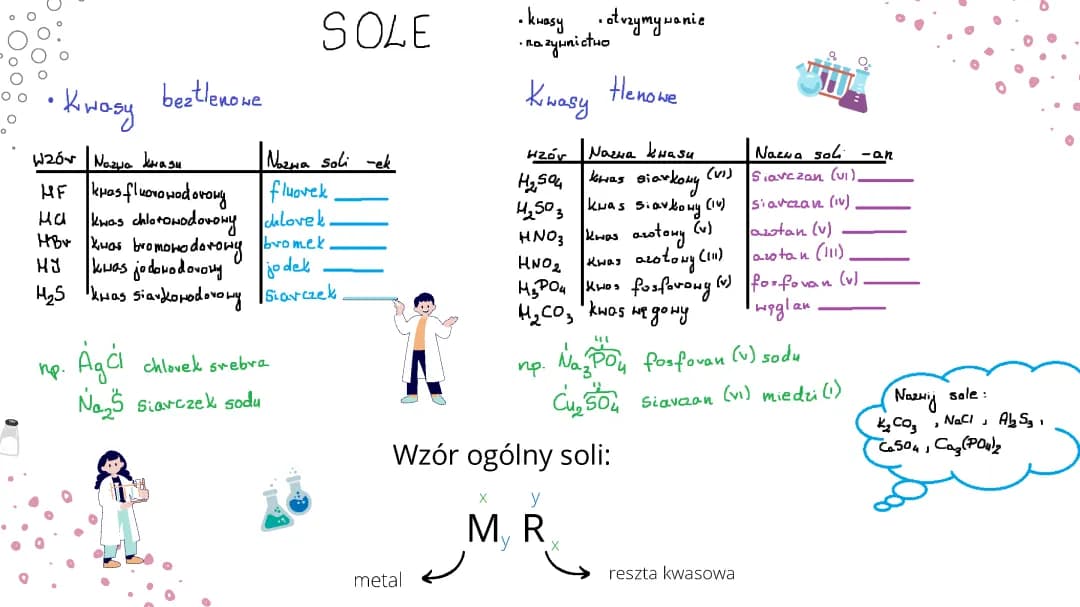 SOLE
• kwasy • otrzymywanie
• nazywnictwo
• Kwasy beztlenowe
Wzór Nazwa kwasu Nazwa soli -ek
HF kwas fluorowodorowy fluorek
HCl kwas chlorowodorowy chlorek
HBr kwas bromowodorowy bromek
HJ kwas jodowodorowy jodek
H₂S kwas siarkowodorowy siarczek
np. AgCl chlorek srebra
Na₂S siarczek sodu
Kwasy tlenowe
Wzór Nazwa kwasu Nazwa soli -an
H₂SO₄ kwas siarkowy (VI) siarczan (VI)
H₂SO₃ kwas siarkowy (IV) siarczan (IV)
HNO₃ kwas azotowy (V) azotan (V)
HNO₂ kwas azotowy (III) azotan (III)
H₃PO₄ kwas fosforowy (V) fosforan (V)
H₂CO₃ kwas węgowy węglan
np. Na₃PO₄ fosforan (V) sodu
Cu₂SO₄ siarczan (VI) miedzi (I)
Nazwij sole:
K₂CO₃, NaCl, Al₂S₃,
CaSO₄, Ca₃(PO₄)₂
Wzór ogólny soli:
x y
M y R x
metal
reszta kwasowa